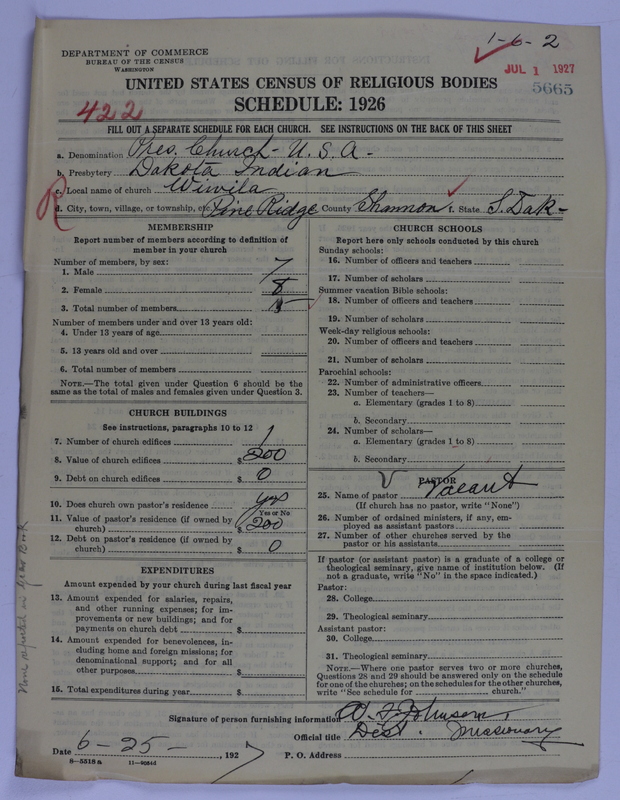 1-6-2
DEPARTMENT OF COMMERCE
BUREAU OF THE CENSUS
WASHINGTON
JUL 1 1927
5665
UNITED STATES CENSUS OF RELIGIOUS BODIES
SCHEDULE: 1926
422
FILL OUT A SEPARATE SCHEDULE FOR EACH CHURCH. SEE INSTRUCTIONS ON THE BACK OF THIS SHEET
a. Denomination Pres. Church - U.S.A -
b. Presbytery Dakota Indian
c. Local name of church Wiwila
R
d. City, town, village, or township, etc. Pine Ridge County Shannon f. State S. Dak -
MEMBERSHIP
Report number of members according to definition of
member in your church
Number of members, by sex:
1. Male 7
2. Female 8
3. Total number of members 15
Number of members under and over 13 years old:
4. Under 13 years of age
5. 13 years old and over
6. Total number of members
NOTE.—The total given under Question 6 should be the
same as the total of males and females given under Question 3.
CHURCH BUILDINGS
See instructions, paragraphs 10 to 12
7. Number of church edifices 1
8. Value of church edifices $200
9. Debt on church edifices $ 0
10. Does church own pastor's residence yes
Yes or No
11. Value of pastor's residence (if owned by
church) $200
12. Debt on pastor's residence (if owned by
church) $ 0
EXPENDITURES
Amount expended by your church during last fiscal year
13. Amount expended for salaries, repairs,
and other running expenses; for im-
provements or new buildings; and for
payments on church debt $
14. Amount expended for benevolences, in-
cluding home and foreign missions; for
denominational support; and for all
other purposes $
15. Total expenditures during year $
CHURCH SCHOOLS
Report here only schools conducted by this church
Sunday schools:
16. Number of officers and teachers
17. Number of scholars
Summer vacation Bible schools:
18. Number of officers and teachers
19. Number of scholars
Week-day religious schools:
20. Number of officers and teachers
21. Number of scholars
Parochial schools:
22. Number of administrative officers
23. Number of teachers—
a. Elementary (grades 1 to 8)
b. Secondary
24. Number of scholars—
a. Elementary (grades 1 to 8)
b. Secondary
PASTOR
25. Name of pastor Vacant
(If church has no pastor, write "None")
26. Number of ordained ministers, if any, em-
ployed as assistant pastors
27. Number of other churches served by the
pastor or his assistants
If pastor (or assistant pastor) is a graduate of a college or
theological seminary, give name of institution below. (If
not a graduate, write "No" in the space indicated.)
Pastor:
28. College
29. Theological seminary
Assistant pastor:
30. College
31. Theological seminary
NOTE.—Where one pastor serves two or more churches,
Questions 28 and 29 should be answered only on the schedule
for one of the churches; on the schedules for the other churches,
write "See schedule for church."
None reported in Year Book
Signature of person furnishing information W F Johnson,
Official title Dist. Missionary
Date 6-25-, 1927
P. O. Address
8-5518 a